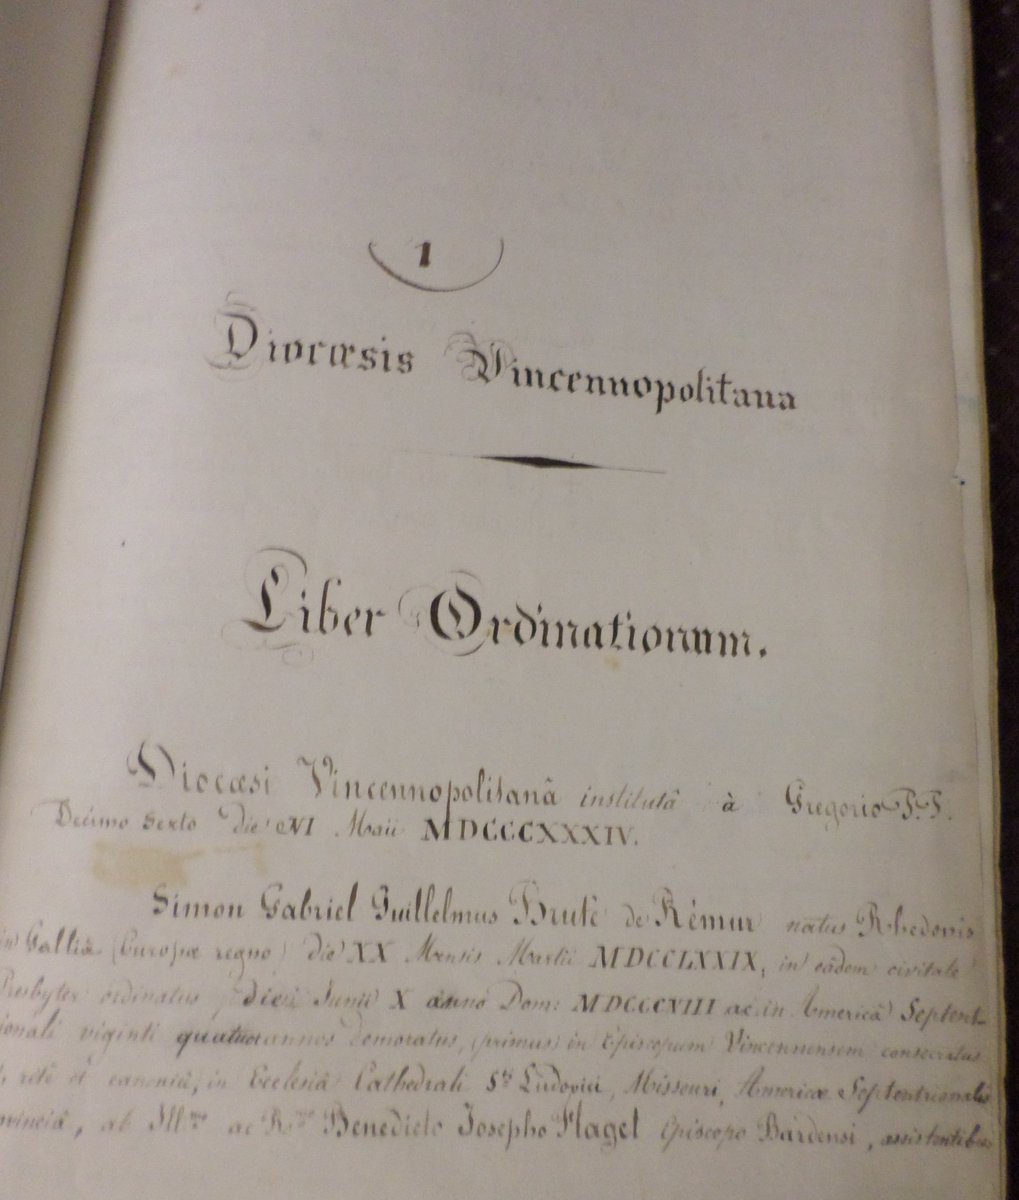 1
Diocæsis Vincennopolitana
Liber Ordinationum.
Diocæsi Vincennopolitanâ institutâ à Gregorio P.P.
Decimo Sexto die VI Maii MDCCCXXXIV.
Simon Gabriel Guillelmus Brutè de Rémur natus Rhedonis
in Galliâ (Europæ regno) die XX Mensis Martii MDCCLXXIX, in eâdem civitate
Presbyter ordinatus die Junii X anno Dom: MDCCCVIII ac in Americâ Septent-
ionali viginti quatuor annos demoratus, (primus) in Episcopum Vincennensem consecratus
rité et canonicé, in Ecclesiâ Cathedrali Sti Ludovici, Missouri, Americæ Septentrionalis
vinciâ, ab Illmo ac Rmo Benedicto Josepho Flaget Episcopo Bardensi, assistentibus